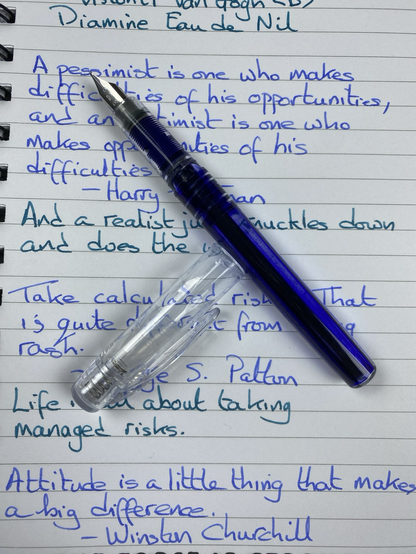 Visconti Van Gogh
Diamine Eau de Nil
A pessimist is one who makes
of his opportunities,
and an optimist is one who
makes opportunities of his
difficulties
- Harry
And a realist knuckles down
and does the
Take calculated risks. That
is quite different from
rash.
S. Patton
Life about taking
managed risks.
Attitude is a little thing that makes
a big difference.
- Winston Churchill